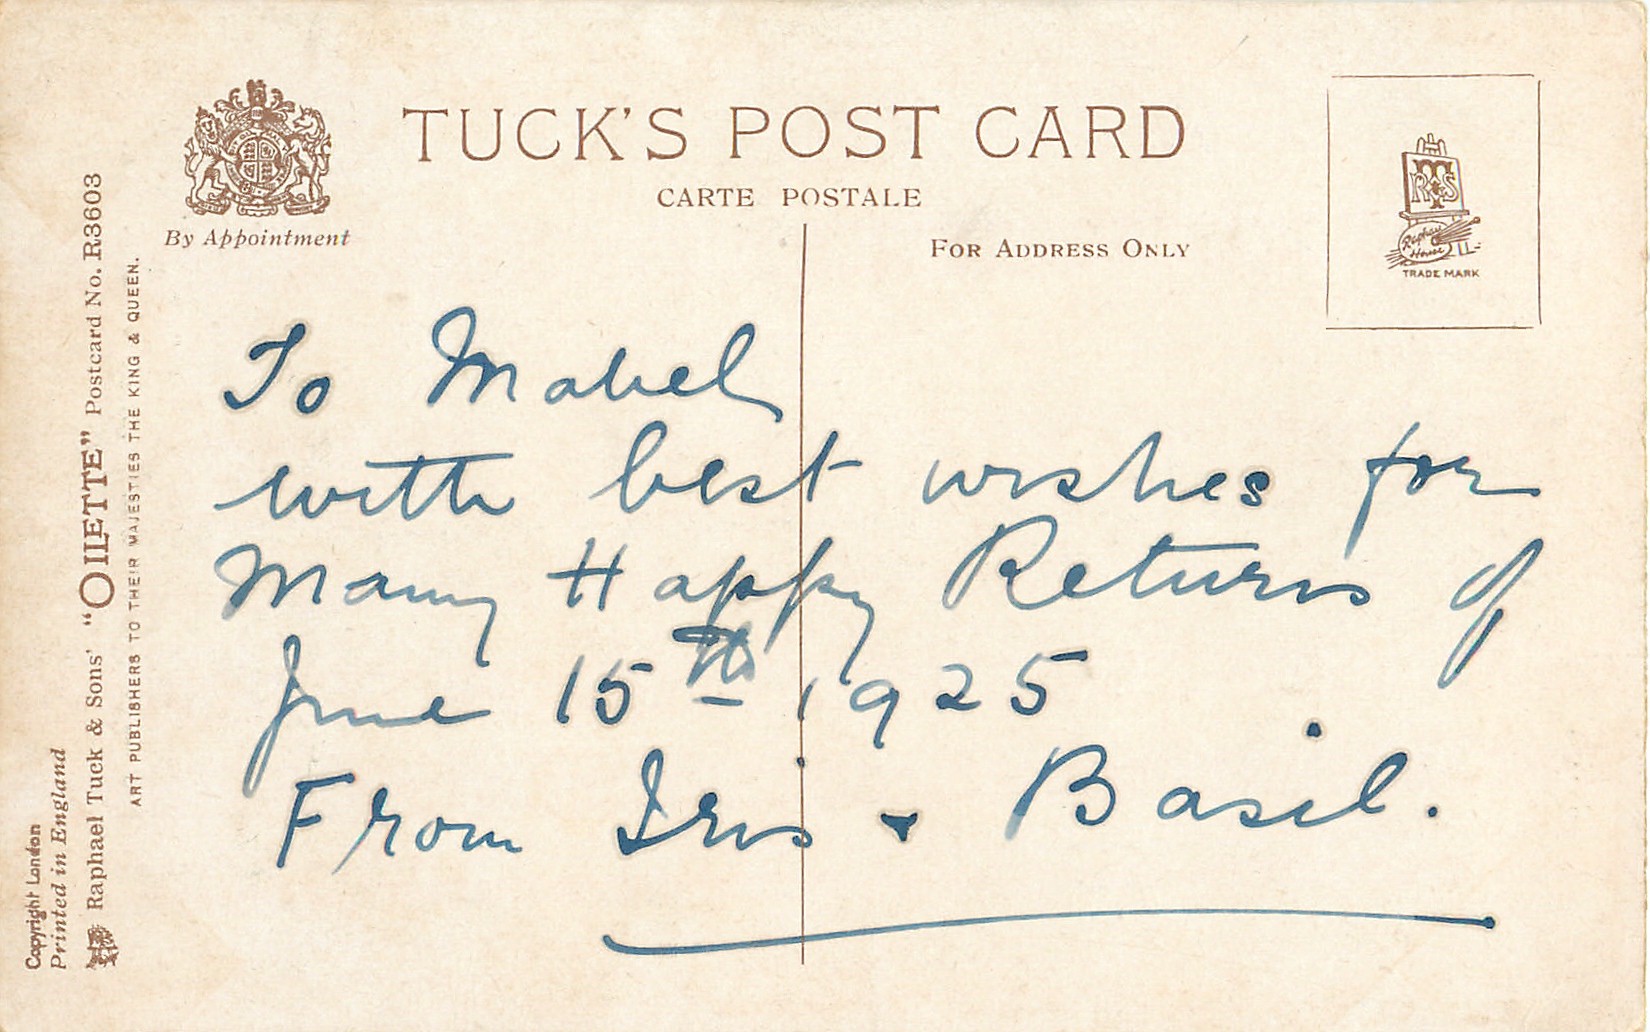 TUCK'S POST CARD
CARTE POSTALE
By Appointment
FOR ADDRESS ONLY
RTS
Raphael House
TRADE MARK
To Mabel
with best wishes for
Many Happy Returns of
June 15th 1925
From Iris & Basil.
Copyright London
Printed in England
Raphael Tuck & Sons' "OILETTE" Postcard No. R3603
ART PUBLISHERS TO THEIR MAJESTIES THE KING & QUEEN.